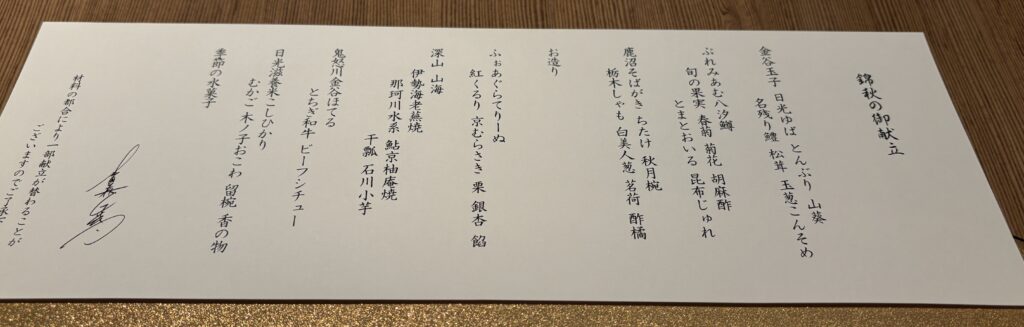 錦秋の御献立
金谷玉子 日光ゆば とんぶり 山葵
名残り鱧 松茸 玉葱こんそめ
ぷれみあむ八汐鱒
旬の果実 春菊 菊花 胡麻酢
とまとおいる 昆布じゅれ
鹿沼そばがき ちたけ 秋月椀
栃木しゃも 白美人葱 茗荷 酢橘
お造り
ふぉあぐらてりーぬ
紅くるり 京むらさき 栗 銀杏 餡
深山 山海
伊勢海老蒸焼
那珂川水系 鮎京柚庵焼
干瓢 石川小芋
鬼怒川金谷ほてる
とちぎ和牛 ビーフシチュー
日光滋養米こしひかり
むかご 木ノ子おこわ 留椀 香の物
季節の水菓子
材料の都合により一部献立が替わることが
ございますのでご了承下